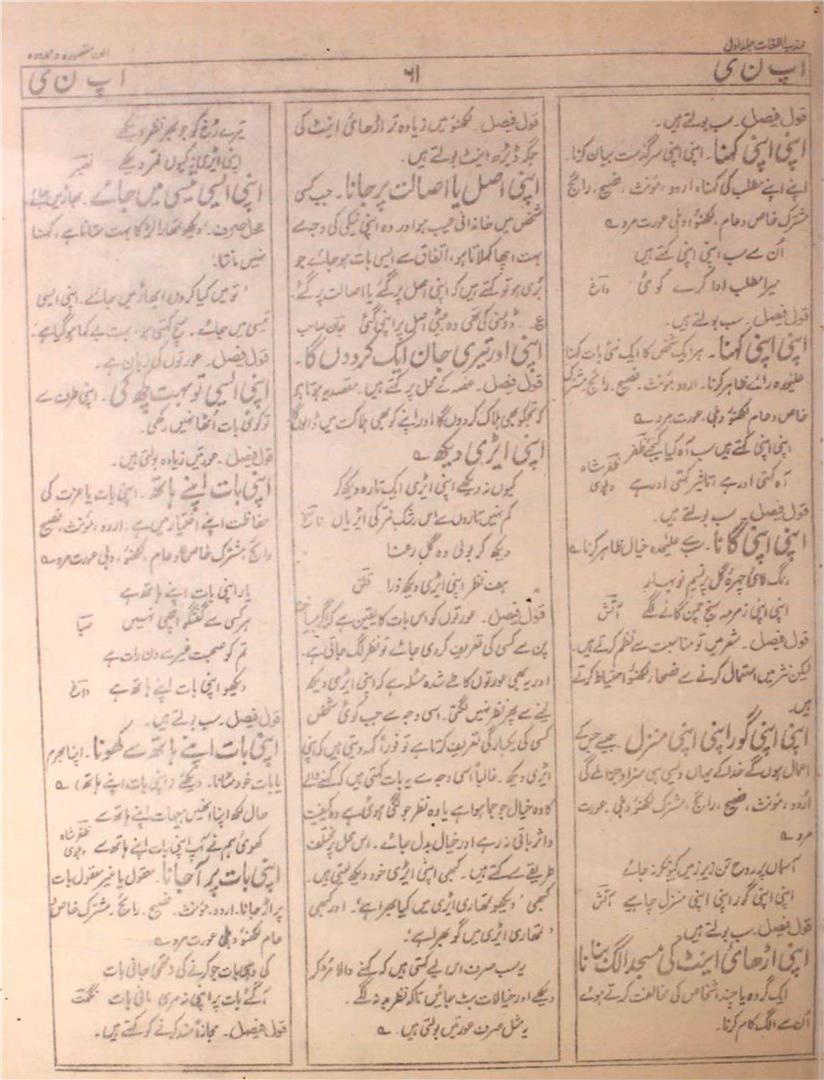 مہذب اللغات جلد اول
اپ ن ی
۶۱
اپ ن ی
قول فیصل۔ سب بولتے ہیں۔
اپنی اپنی کہنا۔ اپنی اپنی سرگذشت بیان کرنا۔
اپنے اپنے مطلب کی کہنا، اردو، مؤنث، فصیح، رائج
مشترک خاص و عام، لکھنؤ، دہلی عورت مرد ؎
اُن سے سب اپنی اپنی کہتے ہیں
میرا مطلب ادا کرے کوئی داغ
قول فیصل۔ سب بولتے ہیں۔
اپنی اپنی کہنا۔ ہر ایک شخص کا ایک نئی بات کہنا
علیٰحدہ رائے ظاہر کرنا۔ اردو، مؤنث، فصیح، رائج، مشترک
خاص و عام لکھنؤ دہلی، عورت مرد ؎
اپنی اپنی کہتے ہیں سب آہ کیا کیجے ظفر
آہ کہتی اور ہے تاثیر کہتی اور ہے ظفر شاہ دہلوی
قول فیصل۔ سب بولتے ہیں۔
اپنی اپنی گانا۔ علیٰحدہ خیال ظاہر کرنا ؎
رنگ فانی چہرۂ گل پر نسیم نوبہار
اپنی اپنی زمزمہ سنج چمن گانے لگے آتش
قول فیصل۔ شعر میں تو مناسبت سے نظم کرتے ہیں۔
لیکن نثر میں استعمال کرنے سے فصحاء لکھنؤ احتیاط کرتے
ہیں۔
اپنی اپنی گور اپنی اپنی منزل جیسے جس کے
اعمال ہوں گے خدا کے یہاں ویسی ہی سزا و جزا ملے گی
اردو، مؤنث، فصیح، رائج، مشترک لکھنؤ دہلی، عورت
مرد ؎
آسماں پر روح تن زیر زمیں کیونکر نہ جائے
اپنی اپنی گور اپنی اپنی منزل چاہیے آتش
قول فیصل۔ سب بولتے ہیں۔
اپنی اڑھائی اینٹ کی مسجد الگ بنانا
ایک گروہ یا چند اشخاص کی مخالفت کرتے ہوئے
اُن سے الگ کام کرنا۔
قول فیصل۔ لکھنؤ میں زیادہ تر اڑھائی اینٹ کی
جگہ ڈیڑھ اینٹ بولتے ہیں۔
اپنی اصل یا اصالت پر جانا۔ جب کسی
شخص میں خاندانی عیب ہو اور وہ اپنی نیکی کی وجہ سے
بہت اچھا کہلاتا ہو، اتفاق سے ایسی بات ہو جائے جو
بُری ہو تو کہتے ہیں کہ اپنی اصل پر گئے یا اصالت پر گئے
ڈومنی کی تھی وہ بیٹی اصل پر اپنی گئی جان صاحب
اپنی اور تیری جان ایک کر دوں گا۔
قول فیصل۔ غصہ کے محل پر کہتے ہیں۔ مقصد یہ ہوتا ہے
کہ تجھ کو بھی ہلاک کر دوں گا اور اپنے کو بھی ہلاکت میں ڈالوں گا
اپنی ایڑی دیکھ ؎
کیوں نہ دیکھے اپنی ایڑی ایک تارہ دیکھ کر
کم نہیں تاروں سے اس رشک قمر کی ایڑیاں
دیکھ کر بولی وہ گل رعنا
بھت نظر اپنی ایڑی دیکھ ذرا قلق
قول فیصل۔ عورتوں کو اس بات کا یقین ہے کہ اگر
پن سے کسی کی تعریف کر دی جائے تو نظر لگ جاتی ہے۔
اور یہ بھی عورتوں کا طے شدہ مسئلہ ہے کہ اپنی ایڑی دیکھ
لینے سے پھر نظر نہیں لگتی۔ اسی وجہ سے جب کوئی شخص
کسی کی یکبارگی تعریف کرتا ہے تو فوراً کہہ دیتی ہیں کہ اپنی
ایڑی دیکھ۔ غالباً اسی وجہ سے یہ بات کہتی ہیں کہ کہنے والے
کا وہ خیال جو جما ہوا ہے یا وہ نظر جو لگی ہوئی ہے وہ کیفیت
و اثر باقی نہ رہے اور خیال بدل جائے۔ اس محل پر مختلف
طریقے سے کہتے ہیں۔ کبھی اپنی ایڑی خود دیکھ لیتی ہیں۔
کبھی "دیکھو تمھاری ایڑی میں کیا بھرا ہے"۔ اور کبھی
"تمھاری ایڑی میں گو بھرا ہے"۔
یہ سب صرف اس لیے کہتی ہیں کہ کہنے والا مڑ کر
دیکھے اور خیالات ہٹ جائیں تاکہ نظر بد نہ لگے۔
یہ مثل صرف عورتیں بولتی ہیں۔ ؎
تیرے رُخ کو جو بھر نظر دیکھے
اپنی ایڑی کیوں قمر دیکھے
اپنی ایسی تیسی میں جائے۔ بھاڑ میں جائے
محل صرف۔ "دیکھو تمھارا لڑکا بہت ستاتا ہے، کہنا
نہیں مانتا"۔
"تو میں کیا کروں بھاڑ میں جائے۔ اپنی ایسی
تیسی میں جائے۔ سچ کہتی ہو، بہت بے کہا ہو گیا ہے"
قول فیصل۔ عورتوں کی زبان ہے۔
اپنی ایسی تو بہت کچھ کی۔ اپنی طرف سے
تو کوئی بات اُٹھا نہیں رکھی۔
قول فیصل۔ عورتیں زیادہ بولتی ہیں۔
اپنی بات اپنے ہاتھ۔ اپنی بات یا عزت کی
حفاظت اپنے اختیار میں ہے۔ اردو، مؤنث، فصیح
رائج، مشترک خاص و عام، لکھنؤ، دہلی عورت مرد ؎
یار اپنی بات اپنے ہاتھ ہے
ہر کسی سے گفتگو اچھی نہیں صبا
تم کو صحبت غیر سے دن رات ہے
دیکھو اپنی بات اپنے ہاتھ ہے داغ
قول فیصل۔ سب بولتے ہیں۔
اپنی بات اپنے ہاتھ سے کھونا۔ اپنا بھرم
یا بات خود مٹانا۔ دیکھئے (اپنی بات اپنے ہاتھ) ؎
حال لکھ اپنا انھیں ہیہات اپنے ہاتھ سے
کھوئی ہم نے آپ اپنی بات اپنے ہاتھ سے ظفر شاہ دہلوی
اپنی بات پر آ جانا۔ معقول یا غیر معقول بات
پر اڑ جانا۔ اردو، مؤنث، فصیح۔ رائج۔ مشترک خاص و
عام لکھنؤ دہلی عورت مرد ؎
آ گئے بات پر اپنی نہ مری مانی بات
قول فیصل۔ مجازاً ضد کرنے کو کہتے ہیں۔